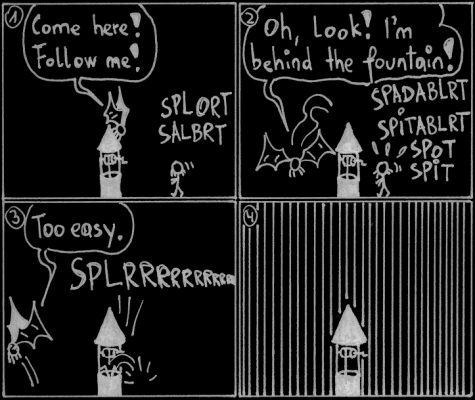 1
Come here!
Follow me!
SPLORT
SALBRT
2
Oh, Look! I'm
behind the fountain!
SPADABLRT
SPiTABLRT
SPOT
SPiT
3
Too easy.
SPLRRRRRRRRRR
4